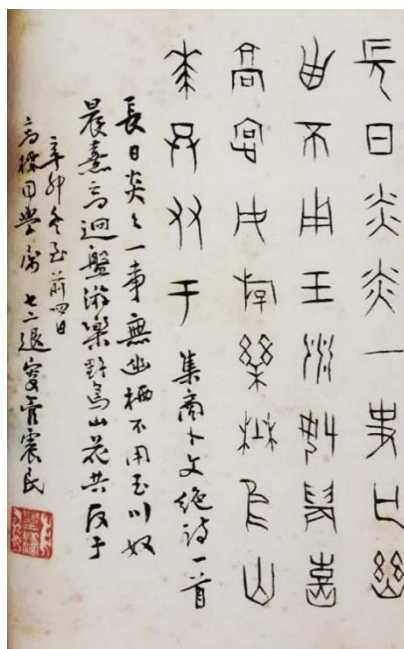 長日炎炎一事亡幽
西不用玉川奴晨熹
高迥般游樂野鳥山
花共友于 集商卜文絕詩一首
長日炎々一事無幽栖不用玉川奴
晨熹高迥盤游樂野鳥山花共友于
辛卯冬至前四日
高同學屬 七二退叟管震民